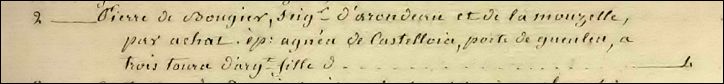 2 Pierre de Bougier, Seigr. d'arondeau et de la mouzelle,
par achat. ép: agnéa de Castelloia, porte de gueulea, a
trois toura d'argt. fille d